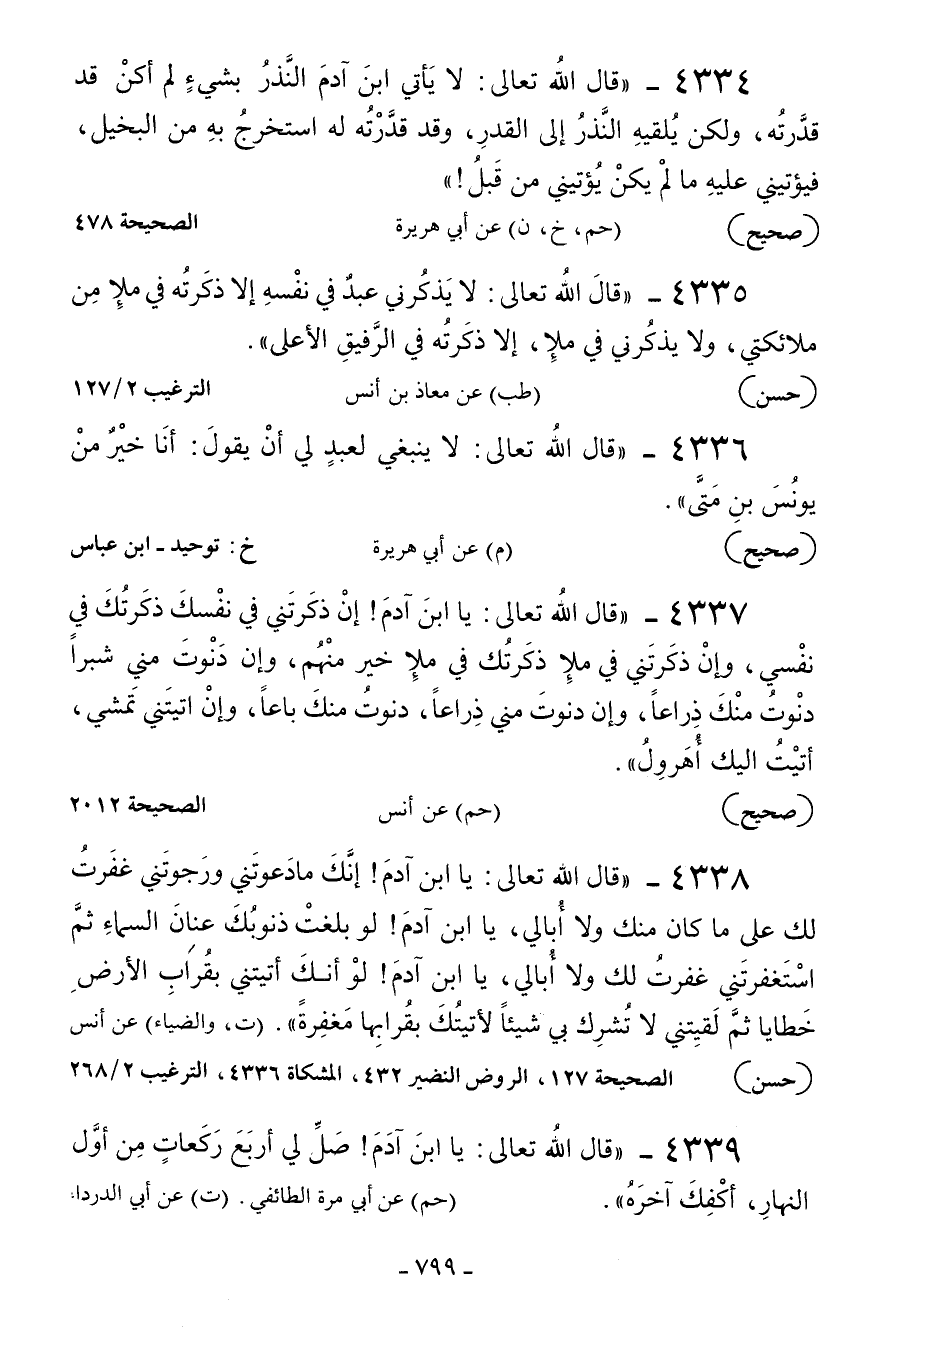 ٤٣٣٤ ـ «قال اللهُ تعالى: لا يَأتي ابنَ آدمَ النَّذرُ بشيءٍ لم أكنْ قد
قدَّرتُه، ولكن يُلقيهِ النَّذرُ إلى القدرِ، وقد قدَّرْتُه له استخرجُ بهِ من البخيل،
فيؤتيني عليهِ ما لمْ يكنْ يُؤتيني من قَبلُ!»
(صحيح) (حم، خ، ن) عن أبي هريرة الصحيحة ٤٧٨
٤٣٣٥ ـ «قالَ اللهُ تعالى: لا يَذكُرني عبدٌ في نفْسهِ إلا ذكَرتُه في ملإٍ مِن
ملائكتي، ولا يذكُرني في ملإٍ، إلا ذكَرتُه في الرَّفيقِ الأعلى».
(حسن) (طب) عن معاذ بن أنس الترغيب ٢/١٢٧
٤٣٣٦ ـ «قال اللهُ تعالى: لا ينبغي لعبدٍ لي أنْ يقولَ: أنَا خيْرٌ منْ
يونُسَ بنِ مَتَّى».
(صحيح) (م) عن أبي هريرة خ: توحيد ـ ابن عباس
٤٣٣٧ ـ «قال اللهُ تعالى: يا ابنَ آدمَ! إنْ ذكَرتَني في نفْسكَ ذكَرتُكَ في
نفْسي، وإنْ ذكَرتَني في ملإٍ ذكَرتُك في ملإٍ خير منْهُم، وإن دَنْوتَ مني شبراً
دنْوتُ منْكَ ذِراعاً، وإن دنوتَ مني ذِراعاً، دنوتُ منكَ باعاً، وإنْ اتيتَني تمَشي،
أتيْتُ اليك أُهَرولُ».
(صحيح) (حم) عن أنس الصحيحة ٢٠١٢
٤٣٣٨ ـ «قال الله تعالى: يا ابن آدمَ! إنَّكَ مادَعوتَني ورَجوتَني غفَرتُ
لك على ما كان منك ولا أُبالي، يا ابن آدمَ! لو بلغتْ ذنوبُكَ عنانَ السماءِ ثمَّ
اسْتَغفرتَني غفرتُ لك ولا أُبالي، يا ابن آدمَ! لوْ أنكَ أتيتني بقُرابِ الأرضِ
خَطايا ثمَّ لَقيِتني لا تُشرِك بي شيئاً لأتيتُكَ بقُرابِها مَغفِرةً». (ت، والضياء) عن أنس
(حسن) الصحيحة ١٢٧، الروض النضير ٤٣٢، المشكاة ٤٣٣٦، الترغيب ٢/٢٦٨
٤٣٣٩ ـ «قال اللهُ تعالى: يا ابنَ آدَمَ! صَلِّ لي أربَعَ رَكَعاتٍ مِن أوَّل
النهارِ، أكْفِكَ آخرَهُ». (حم) عن أبي مرة الطائفي. (ت) عن أبي الدرداء
ـ ٧٩٩ ـ